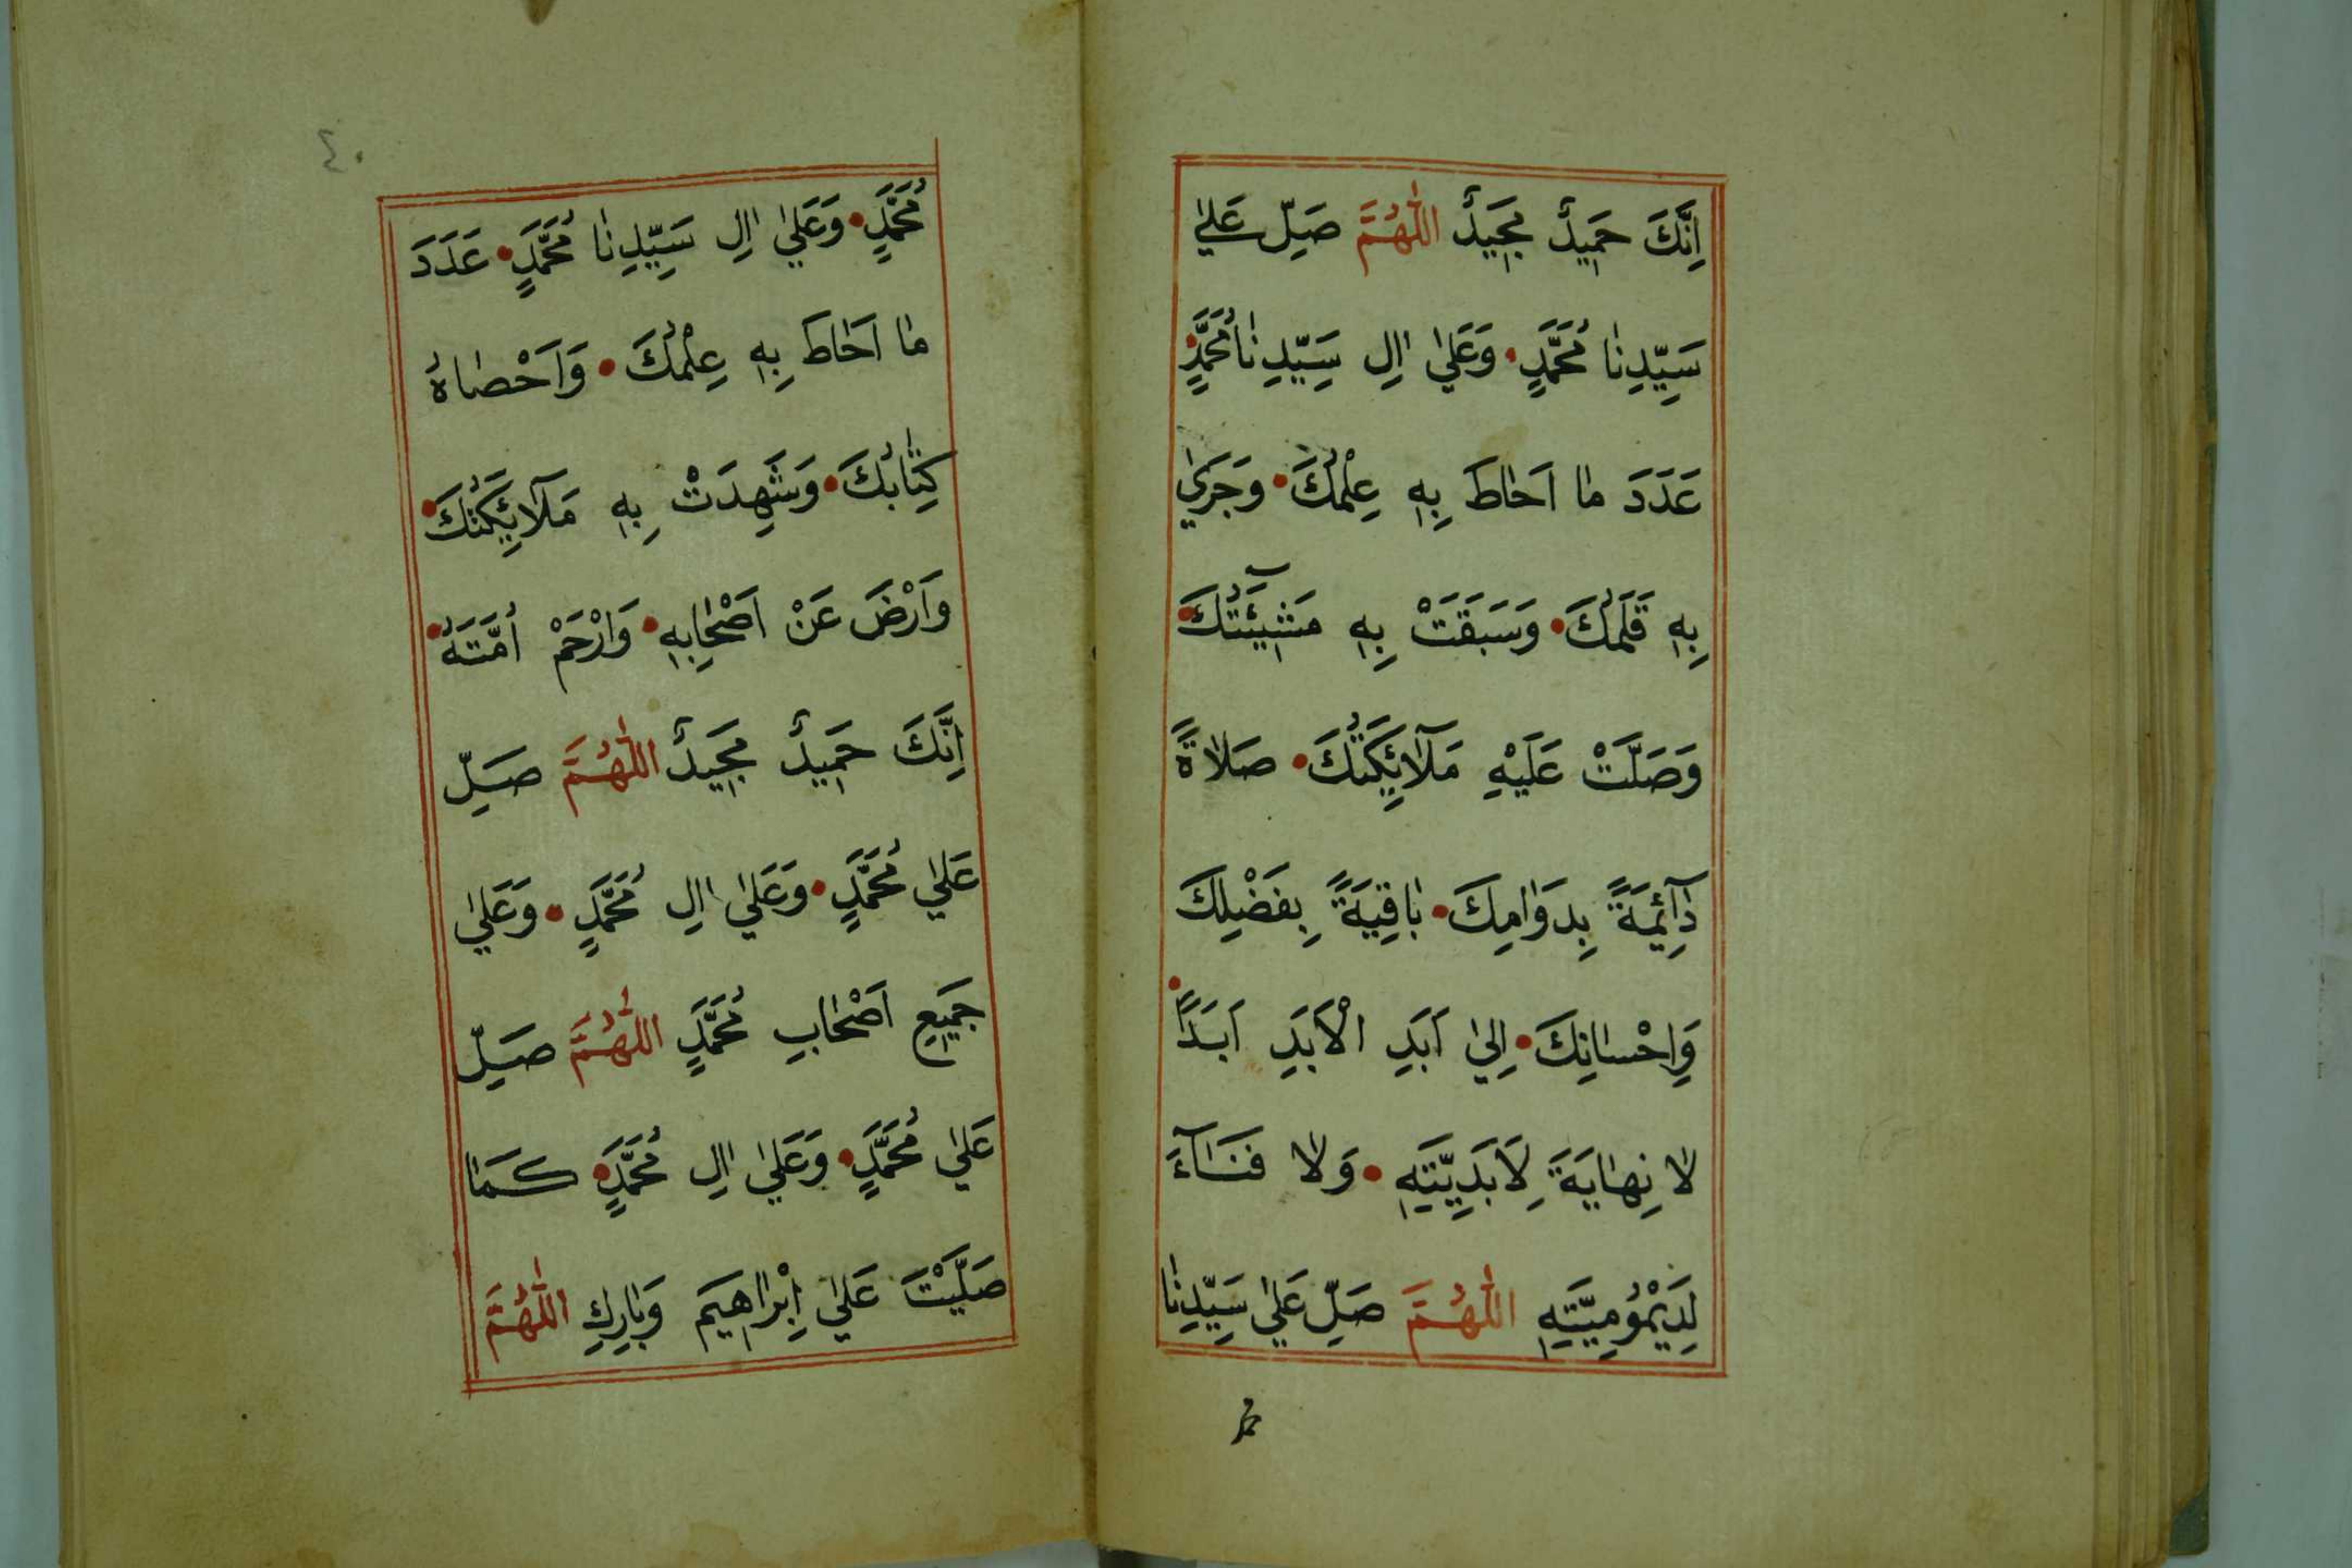 اِنَّكَ حَمِيدٌ مَجِيدٌ اللّٰهُمَّ صَلِّ عَلٰي
سَيِّدِنٰا مُحَمَّدٍ • وَعَلٰي اٰلِ سَيِّدِنٰا مُحَمَّدٍ •
عَدَدَ مٰا اَحٰاطَ بِهٖ عِلْمُكَ • وَجَرٰي
بِهٖ قَلَمُكَ • وَسَبَقَتْ بِهٖ مَشٖيئَتُكَ •
وَصَلَّتْ عَلَيْهِ مَلٰٓائِكَتُكَ • صَلٰاةً
دٰٓائِمَةً بِدَوٰامِكَ • بٰاقِيَةً بِفَضْلِكَ
وَاِحْسٰانِكَ • اِلٰي اَبَدِ الْاَبَدِ اَبَدًا •
لٰا نِهٰايَةَ لِاَبَدِيَّتِهٖ • وَلٰا فَنَٓاءَ
لِدَيْمُومِيَّتِهٖ اللّٰهُمَّ صَلِّ عَلٰي سَيِّدِنٰا
٤٠
مُحَمَّدٍ • وَعَلٰي اٰلِ سَيِّدِنٰا مُحَمَّدٍ • عَدَدَ
مٰا اَحٰاطَ بِهٖ عِلْمُكَ • وَاَحْصٰاهُ
كِتٰابُكَ • وَشَهِدَتْ بِهٖ مَلٰٓائِكَتُكَ •
وَارْضَ عَنْ اَصْحٰابِهٖ • وَارْحَمْ اُمَّتَهُ •
اِنَّكَ حَمٖيدٌ مَجٖيدٌ اللّٰهُمَّ صَلِّ
عَلٰي مُحَمَّدٍ • وَعَلٰي اٰلِ مُحَمَّدٍ • وَعَلٰي
جَمٖيعِ اَصْحٰابِ مُحَمَّدٍ اللّٰهُمَّ صَلِّ
عَلٰي مُحَمَّدٍ • وَعَلٰي اٰلِ مُحَمَّدٍ • كَمٰا
صَلَّيْتَ عَلٰي اِبْرٰاهٖيمَ وَبٰارِكِ اللّٰهُمَّ